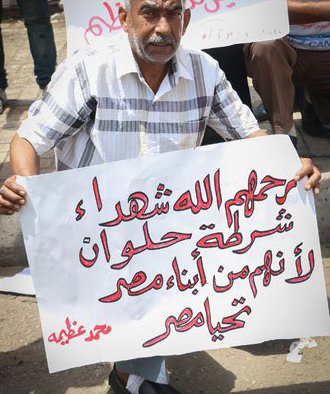 يرحمهم الله شهداء
شرطة حلوان
لأنهم من أبناء مصر
تحيا مصر
محمد عظيمه